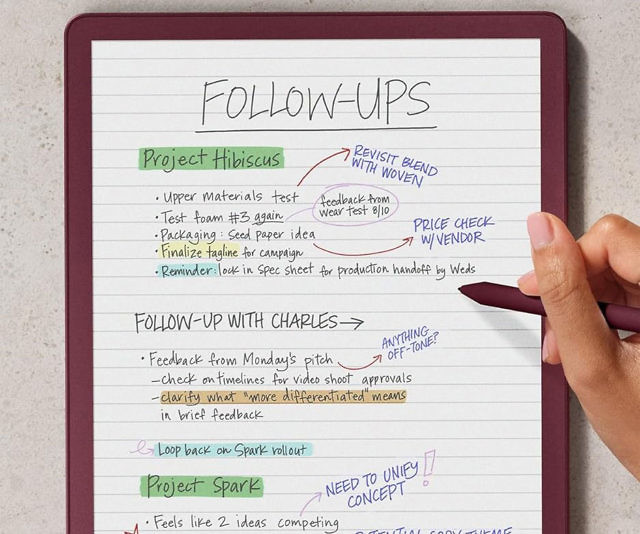 FOLLOW-UPS
Project Hibiscus
REVISIT BLEND
WITH WOVEN
• Upper materials test
• Test foam #3 again
feedback from
wear test 8/10
• Packaging: Seed paper idea
PRICE CHECK
W/VENDOR
• Finalize tagline for campaign
• Reminder: lock in spec sheet for production handoff by Weds
FOLLOW-UP WITH CHARLES →
ANYTHING
OFF-TONE?
• Feedback from Monday's pitch
– check on timelines for video shoot approvals
– clarify what "more differentiated" means
in brief feedback
Loop back on Spark rollout
Project Spark
NEED TO UNIFY
CONCEPT !
• Feels like 2 ideas competing